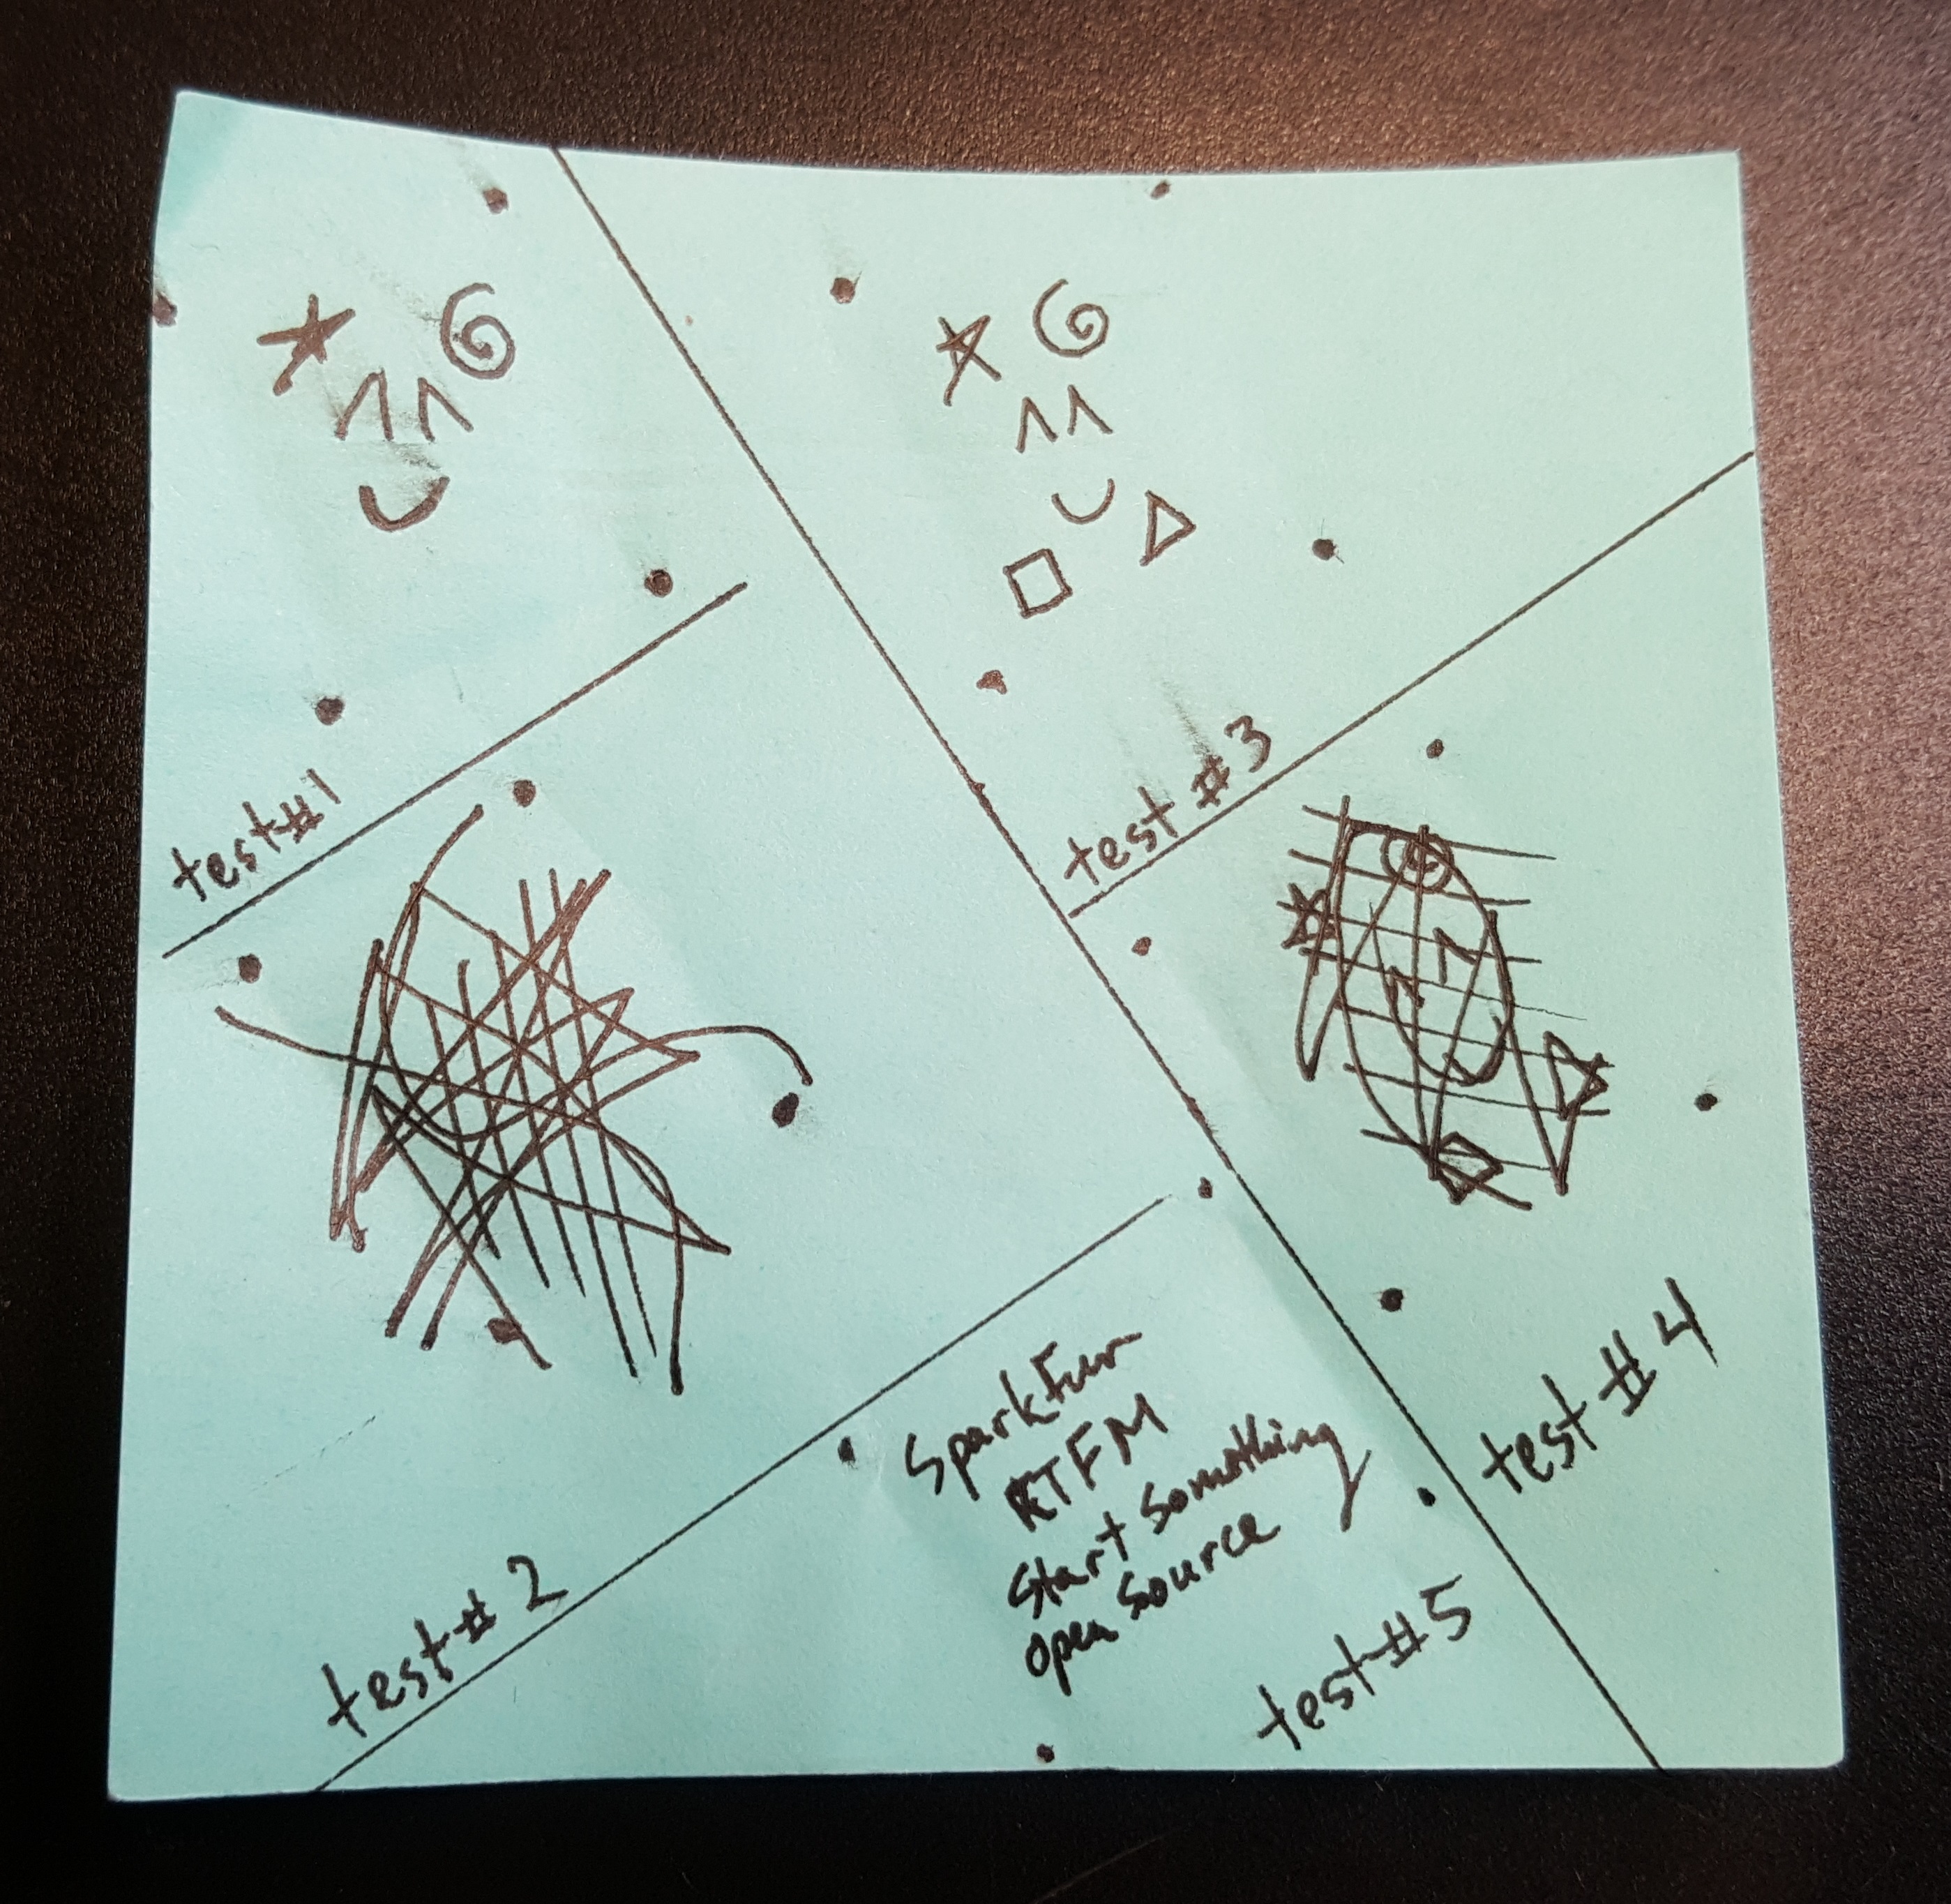 test#1
test #3
test# 2
test # 4
SparkFun
RTFM
Start Something
Open Source
test #5